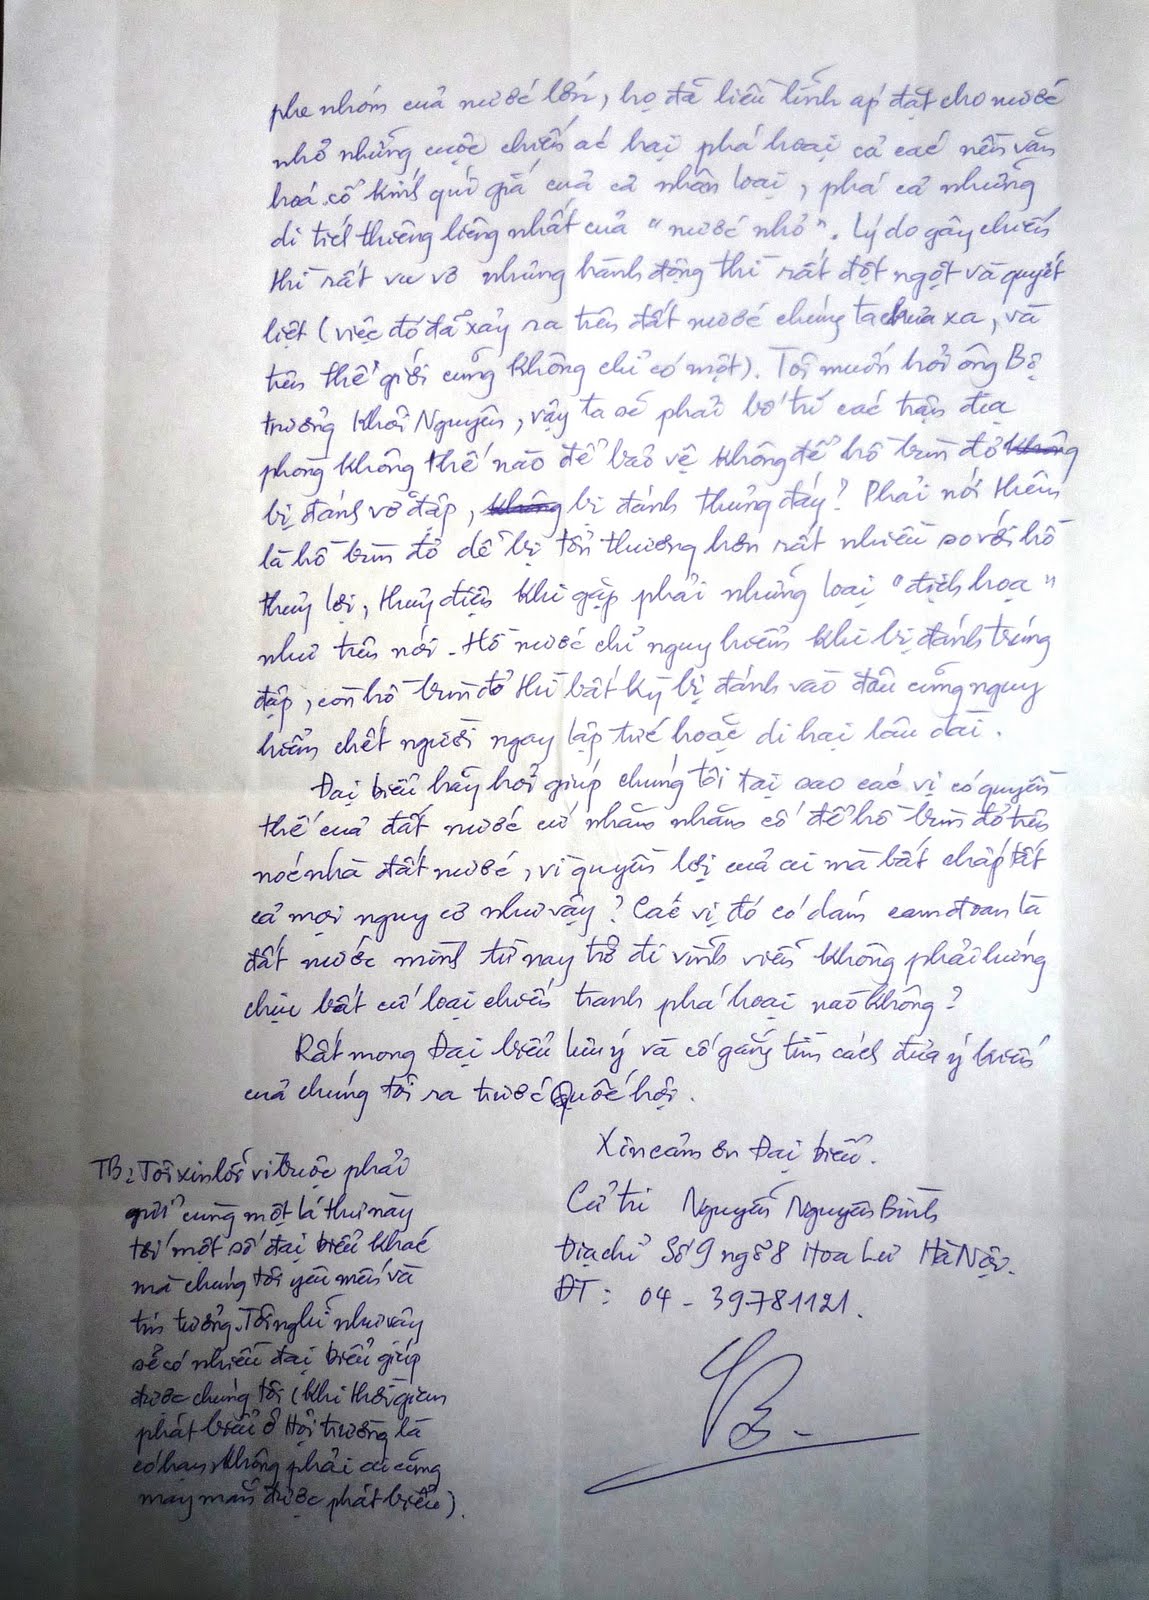 phe nhóm của nước lớn, họ đã liều lĩnh áp đặt cho nước
nhỏ những cuộc chiến ác hại phá hoại cả các nền văn
hoá cổ kính quí giá của cả nhân loại, phá cả những
di tích thiêng liêng nhất của "nước nhỏ". Lý do gây chiến
thì rất vu vơ nhưng hành động thì rất đột ngột và quyết
liệt (việc đó đã xảy ra trên đất nước chúng ta chưa xa, và
trên thế giới cũng không chỉ có một). Tôi muốn hỏi ông Bộ
trưởng Khôi Nguyên, vậy ta sẽ phải bố trí các trận địa
phòng không thế nào để bảo vệ không để hồ bùn đỏ không
bị đánh vỡ đập, không bị đánh thủng đáy? Phải nói thêm
là hồ bùn đỏ dễ bị tổn thương hơn rất nhiều so với hồ
thuỷ lợi, thuỷ điện khi gặp phải những loại "địch hoạ"
như trên nói. Hồ nước chỉ nguy hiểm khi bị đánh trúng
đập, còn hồ bùn đỏ thì bất kỳ bị đánh vào đâu cũng nguy
hiểm chết người ngay lập tức hoặc di hại lâu dài.
Đại biểu hãy hỏi giúp chúng tôi tại sao các vị có quyền
thế của đất nước cứ nhăm nhăm cố để hồ bùn đỏ trên
nóc nhà đất nước, vì quyền lợi của ai mà bất chấp tất
cả mọi nguy cơ như vậy? Các vị đó có dám cam đoan là
đất nước mình từ nay trở đi vĩnh viễn không phải hứng
chịu bất cứ loại chiến tranh phá hoại nào không?
Rất mong Đại biểu lưu ý và cố gắng tìm cách đưa ý kiến
của chúng tôi ra trước Quốc hội.
Xin cảm ơn Đại biểu.
Cử tri Nguyễn Nguyên Bình
Địa chỉ Số 9 ngõ 8 Hoa Lư Hà Nội.
ĐT: 04 - 39781121.
TB: Tôi xin lỗi vì buộc phải
gửi cùng một lá thư này
tới một số đại biểu khác
mà chúng tôi yêu mến và
tin tưởng. Tôi nghĩ như vậy
sẽ có nhiều đại biểu giúp
được chúng tôi (khi thời gian
phát biểu ở Hội trường là
có hạn, không phải ai cũng
may mắn được phát biểu).